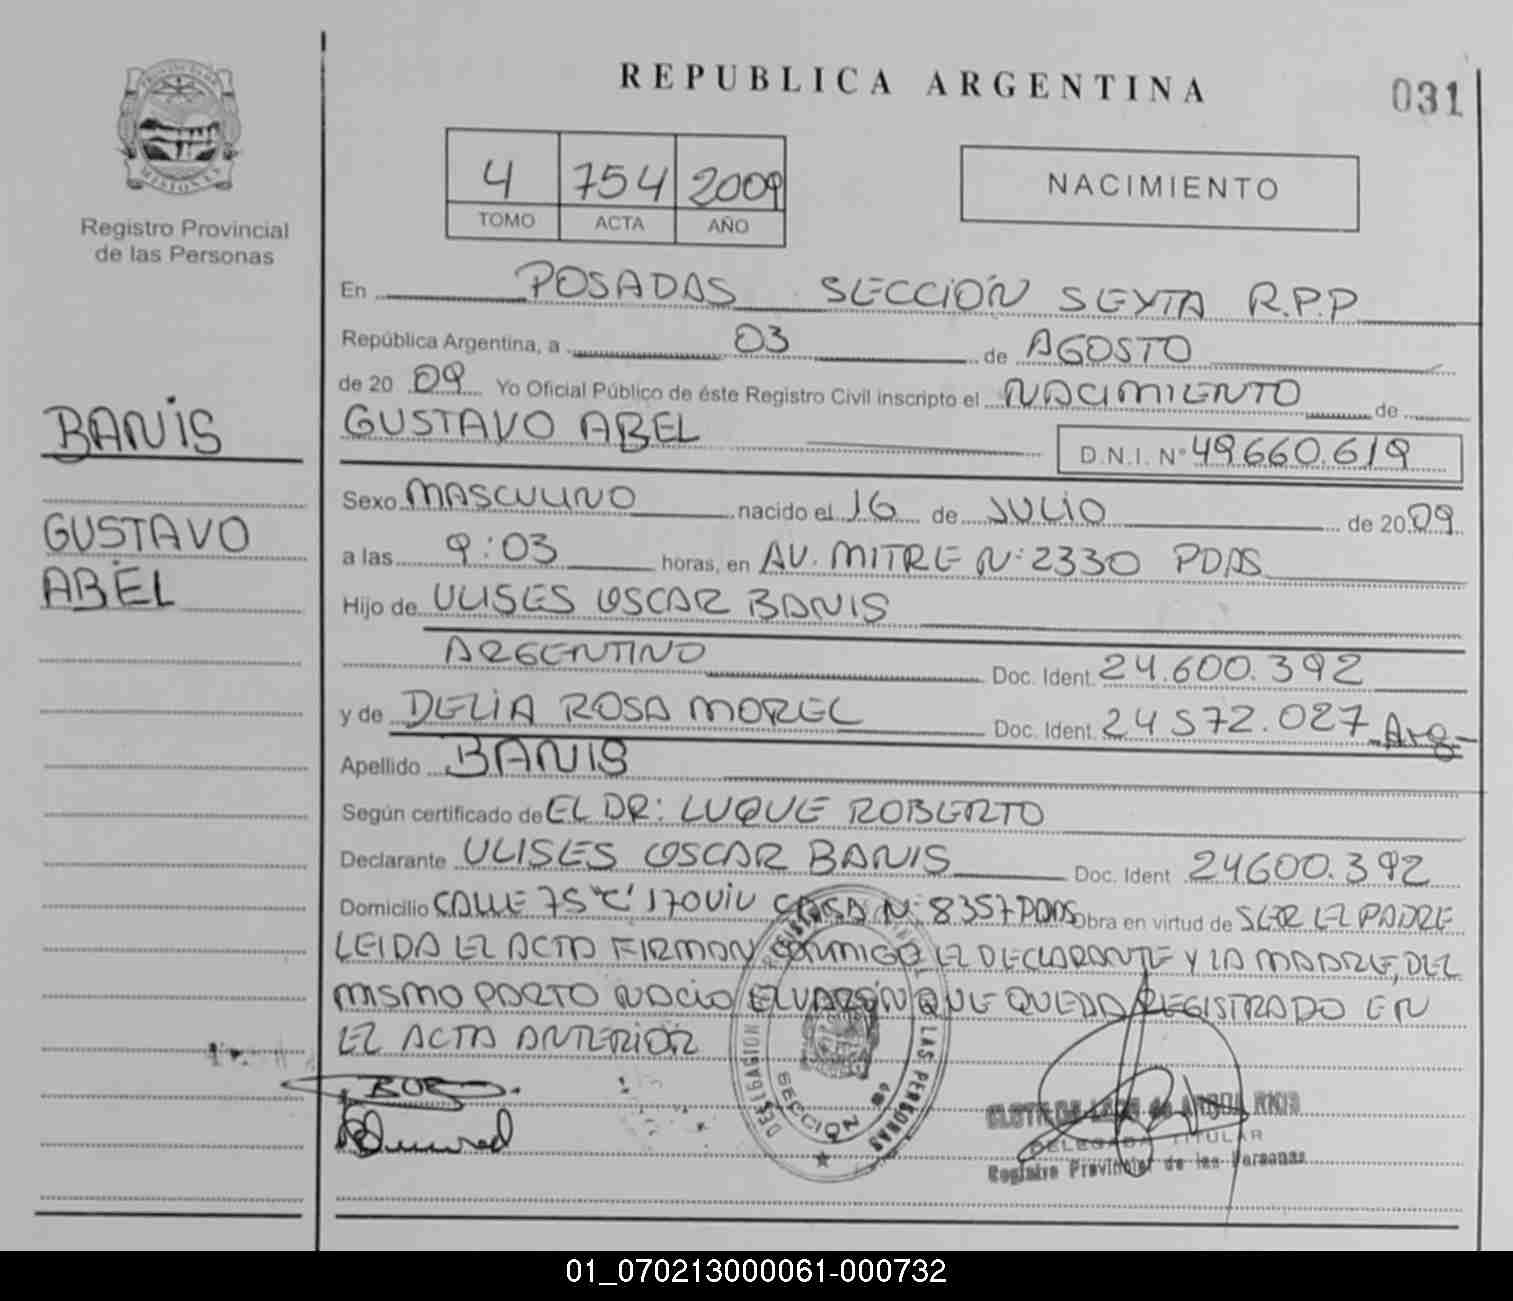 REPUBLICA ARGENTINA
031
PROVINCIA DE
MISIONES
Registro Provincial
de las Personas
4 754 2009
TOMO ACTA AÑO
NACIMIENTO
En POSADAS SECCIÓN SEXTA R.P.P
República Argentina, a 03 de AGOSTO
de 20 09 Yo Oficial Público de éste Registro Civil inscripto el NACIMIENTO de
GUSTAVO ABEL
D.N.I. Nº 49660.619
BANIS
GUSTAVO
ABEL
Sexo MASCULINO nacido el 16 de JULIO de 20 09
a las 9:03 horas, en AV. MITRE N: 2330 PDAS
Hijo de ULISES OSCAR BANIS
ARGENTINO Doc. Ident. 24.600.392
y de DELIA ROSA MOREL Doc. Ident. 24 572.027 Arg-
Apellido BANIS
Según certificado de EL DR: LUQUE ROBERTO
Declarante ULISES OSCAR BANIS Doc. Ident 24600.392
Domicilio CALLE 75 "C" 170 VIV CASA N: 8357 PDAS Obra en virtud de SER EL PADRE
LEIDA EL ACTA FIRMAN CONMIGO EL DECLARANTE Y LA MADRE, DEL
MISMO PARTO NACIO EL VARÓN QUE QUEDA REGISTRADO EN
EL ACTA ANTERIOR
DELEGACION
LAS PERSONAS
SECCION
DELEGADA TITULAR
Registro Provincial de las Personas
01_070213000061-000732